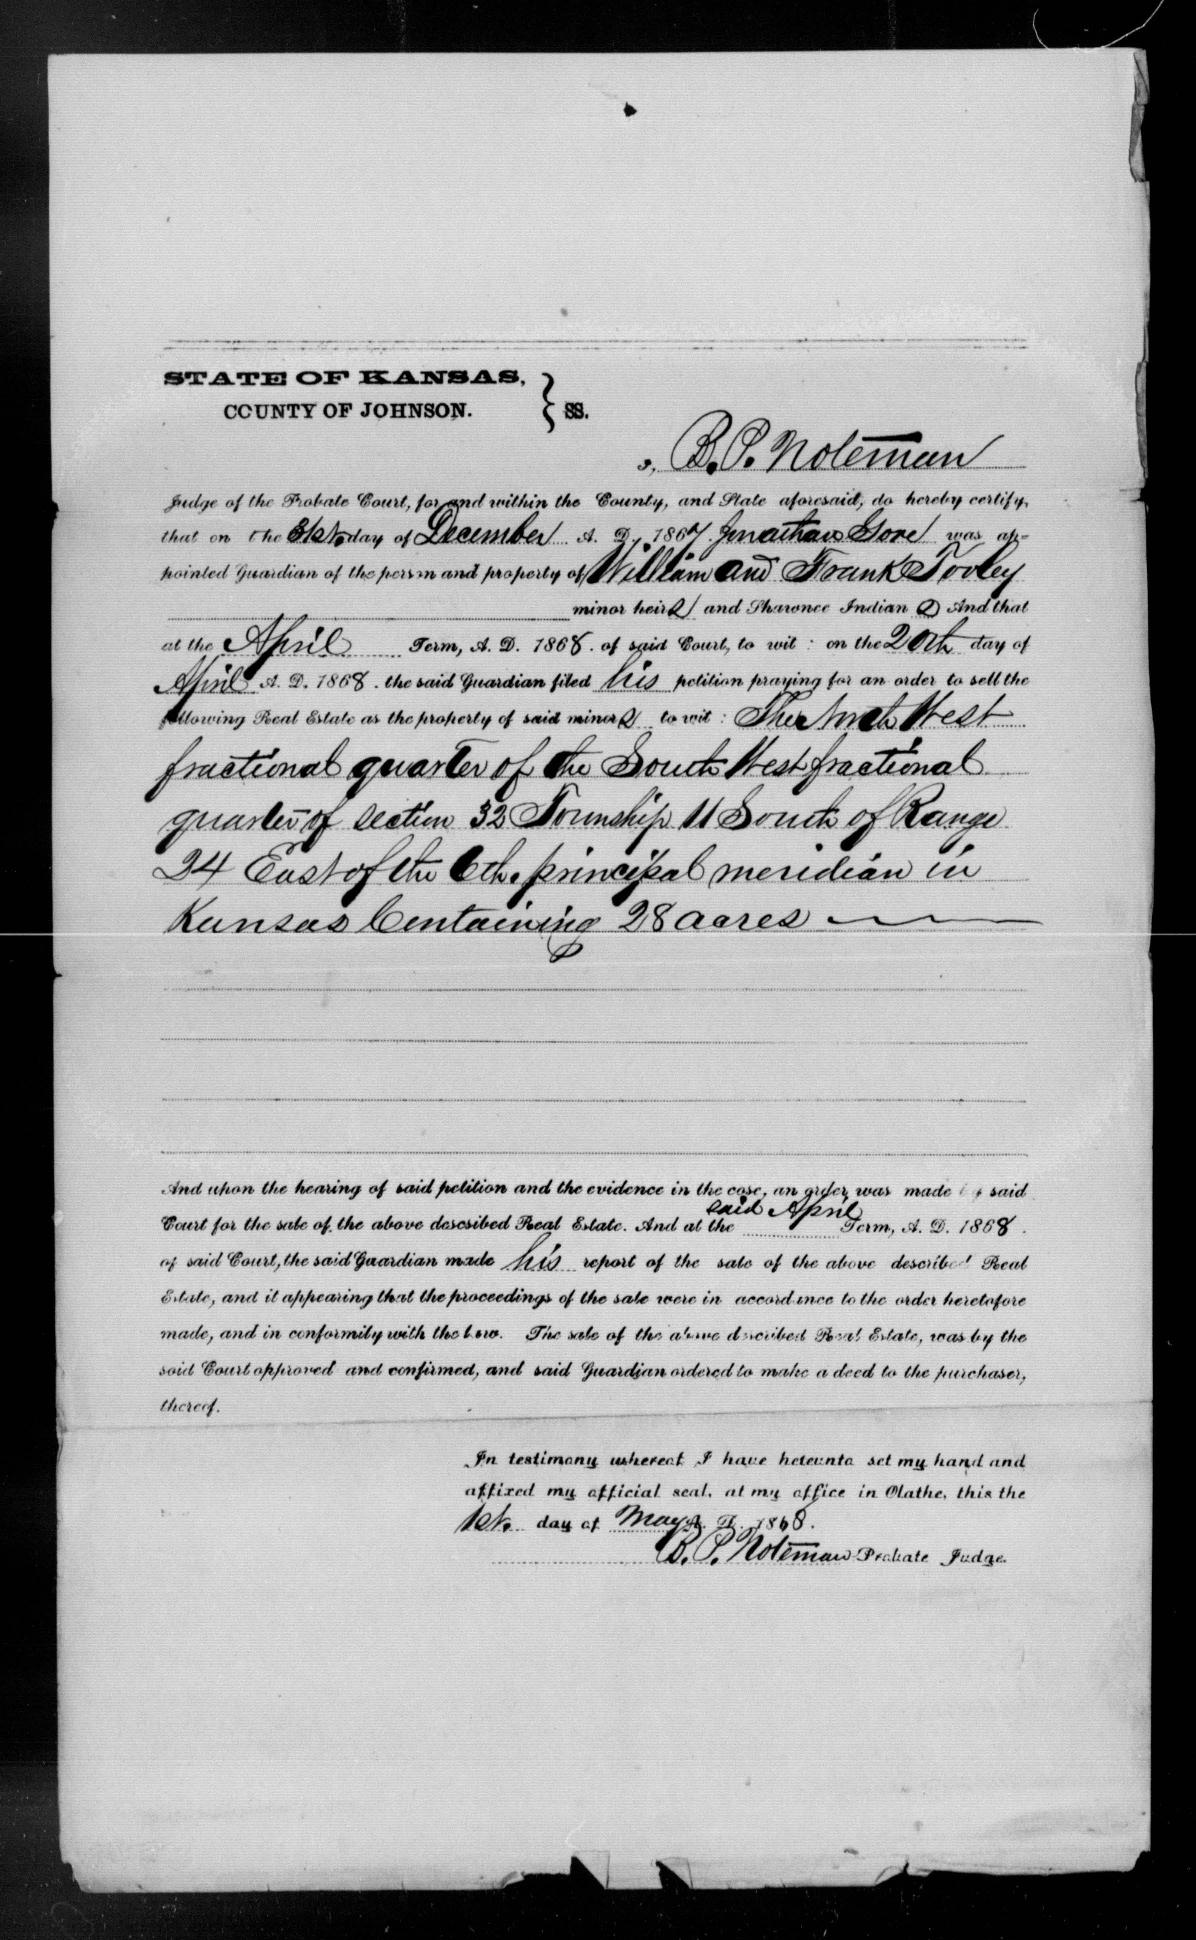 STATE OF KANSAS,
COUNTY OF JOHNSON. } SS.
I, B. P. Noteman
Judge of the Probate Court, for and within the County, and State aforesaid, do hereby certify,
that on the 31st. day of December A. D., 1867. Jonathan Gore was ap-
pointed Guardian of the person and property of William and Frank Tooley
minor heirs and Shawnee Indian s And that
at the April Term, A. D. 1868. of said Court, to wit: on the 20th day of
April A. D. 1868. the said Guardian filed his petition praying for an order to sell the
following Real Estate as the property of said minors to wit: The North West
fractional quarter of the South West fractional
quarter of section 32 Township 11 South of Range
24 East of the 6th. principal meridian in
Kansas Containing 28 acres
And upon the hearing of said petition and the evidence in the case, an order was made by said
Court for the sale of the above descsibed Real Estate. And at the said April Term, A. D. 1868.
of said Court, the said Guardian made his report of the sale of the above described Real
Estate, and it appearing that the proceedings of the sale were in accordance to the order heretofore
made, and in conformity with the law. The sale of the above described Real Estate, was by the
said Court approved and confirmed, and said Guardian ordered to make a deed to the purchaser,
thereof.
In testimony whereof I have hereunto set my hand and
affixed my official seal, at my office in Olathe, this the
1st. day of May A. D. 1868.
B. P. Noteman Probate Judge.